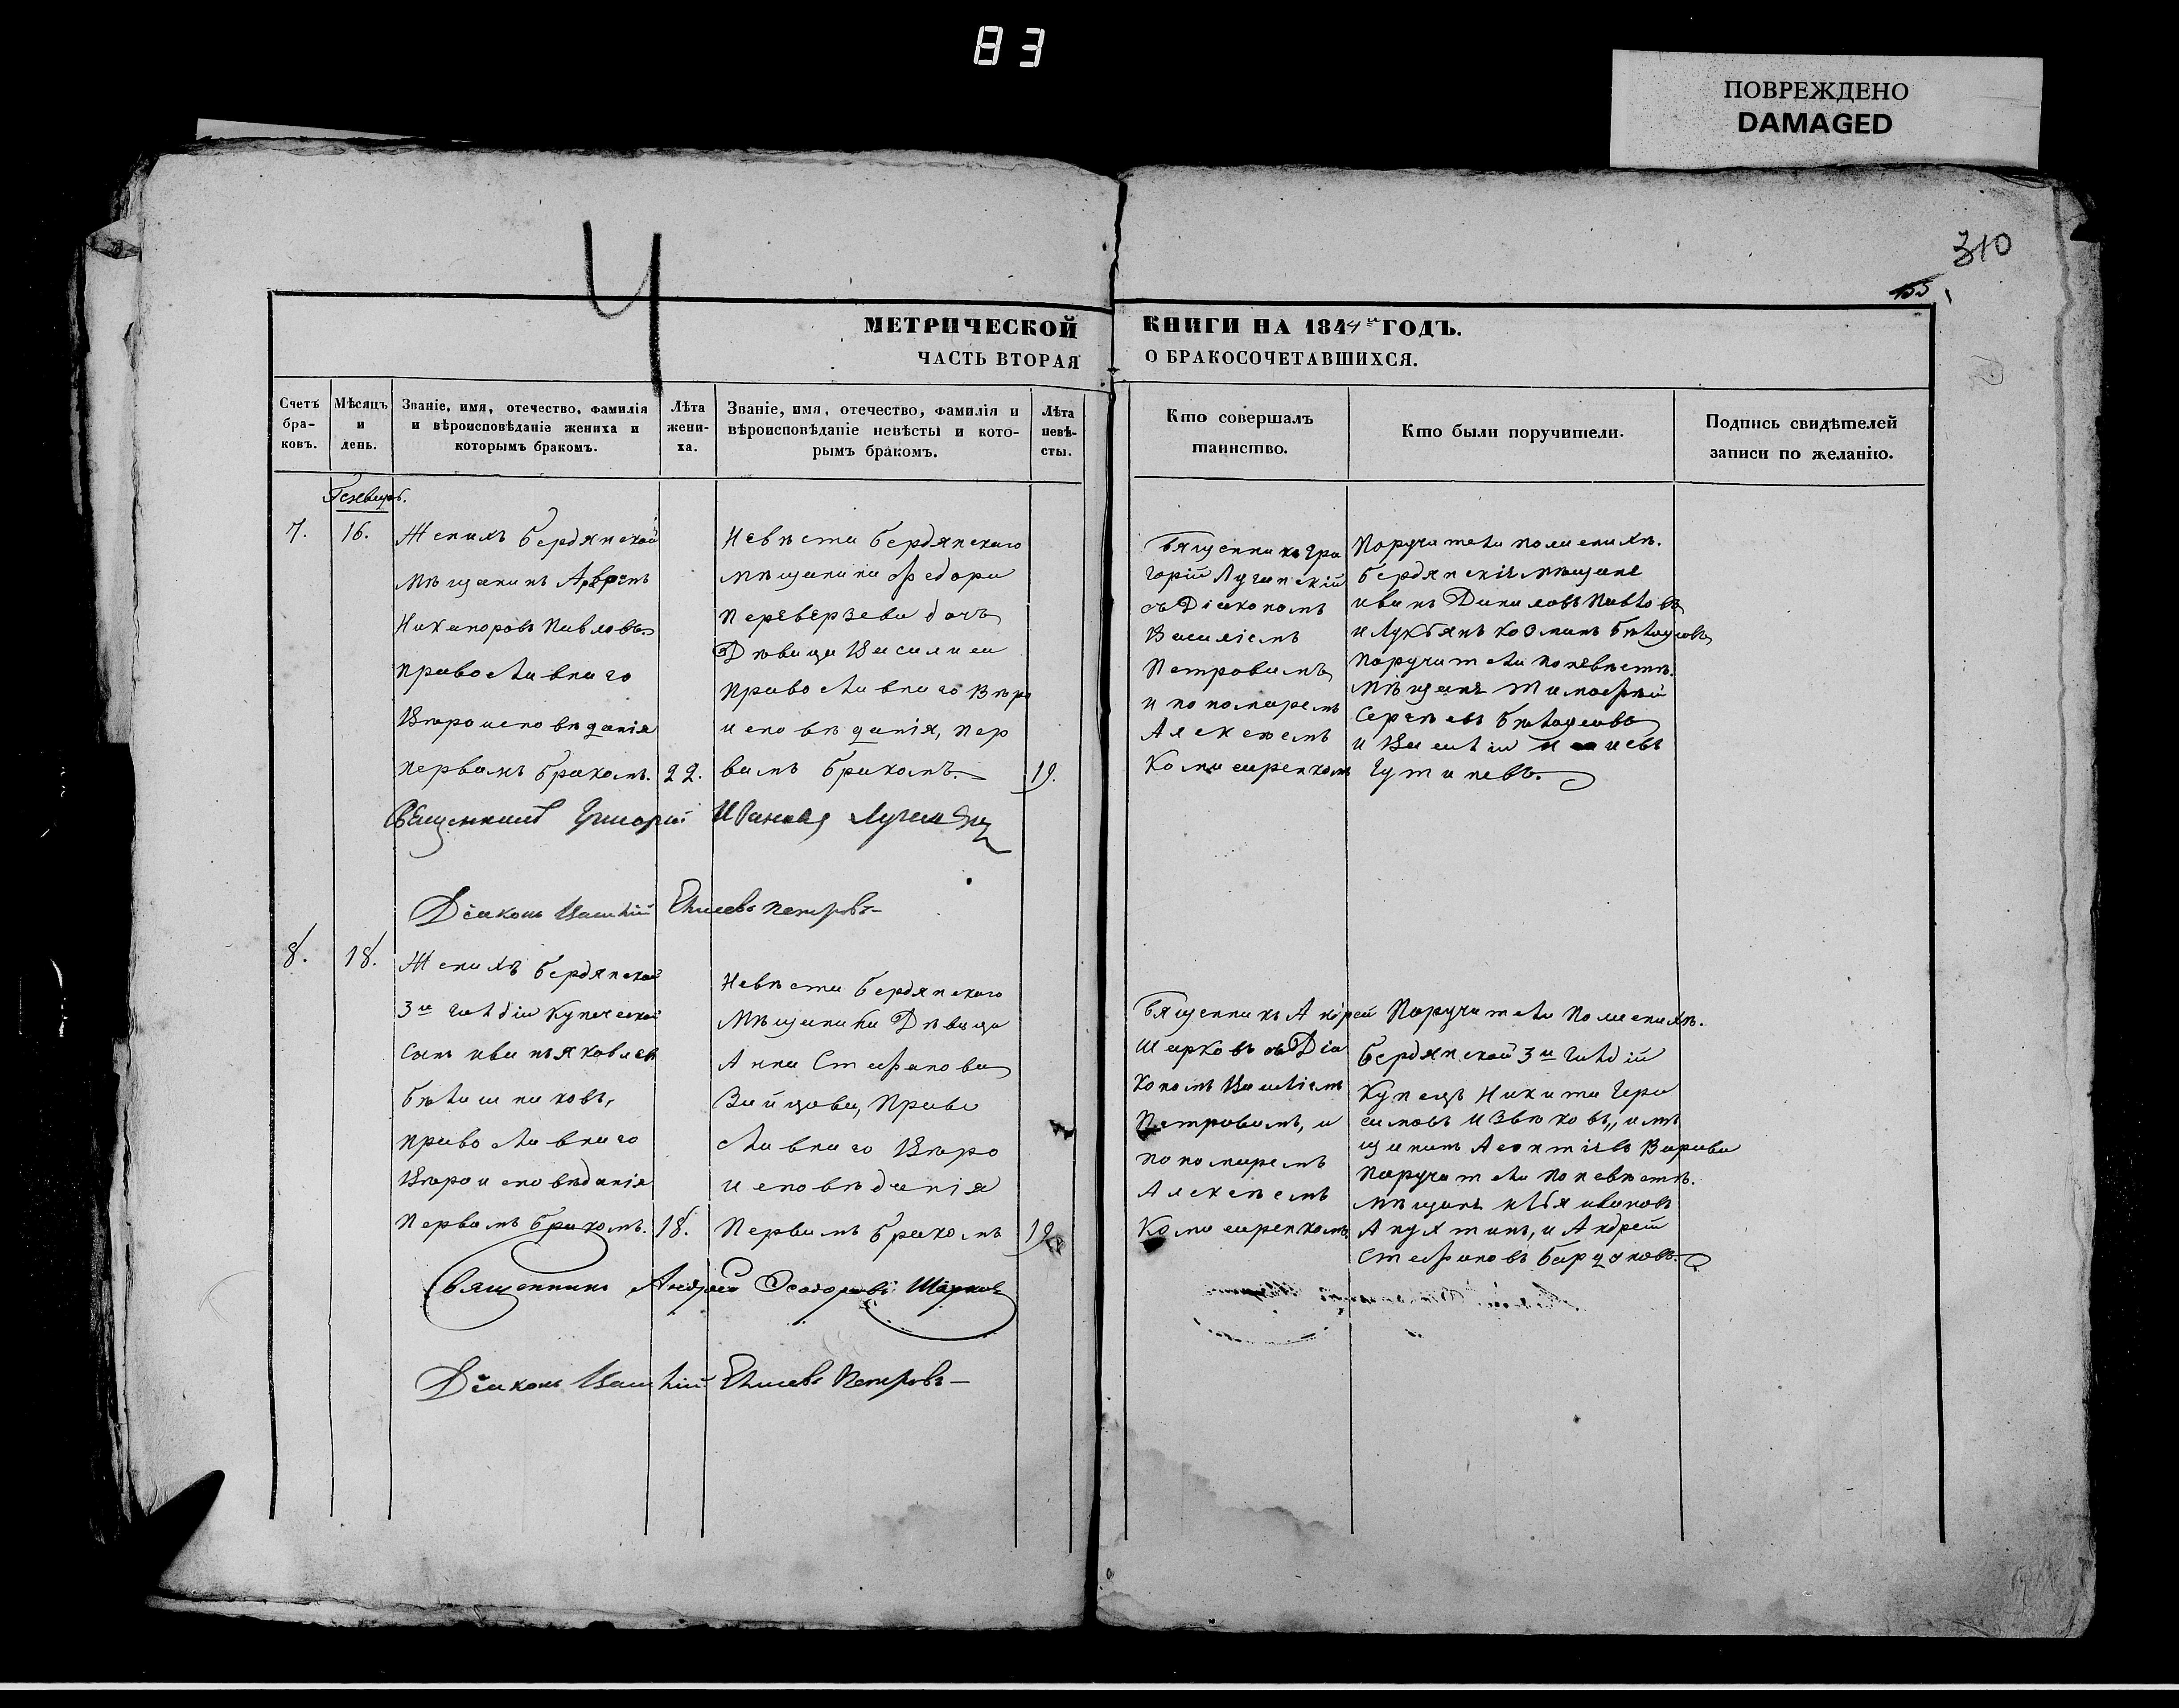 83
ПОВРЕЖДЕНО
DAMAGED
310
155
МЕТРИЧЕСКОЙ КНИГИ НА 1844й ГОДЪ.
ЧАСТЬ ВТОРАЯ О БРАКОСОЧЕТАВШИХСЯ.
Счетъ браковъ.
Мѣсяцъ и день.
Званіе, имя, отечество, фамилія
и вѣроисповѣданіе жениха и
которымъ бракомъ.
Лѣта
жени-
ха.
Званіе, имя, отечество, фамилія и
вѣроисповѣданіе невѣсты и кото-
рымъ бракомъ.
Лѣта
невѣ-
сты.
Кто совершалъ
таинство.
Кто были поручители.
Подпись свидѣтелей
записи по желанію.
Генварь.
7.
16.
Женихъ бердянской
мѣщанинъ
Никаноровъ Павловъ
православнаго
Вѣроисповѣданія
первымъ бракомъ.
22.
Невѣста бердянскаго
мѣщанина Федора
Переверзева дочь
Дѣвица Василиса
православнаго Вѣро
исповѣданія, пер
вымъ бракомъ.
19.
Священникъ Гри
горій Лучинскій
съ Діакономъ
Василіемъ
Петровымъ
и пономаремъ
Алексеемъ
Комисаренкомъ
Поручатели по женихѣ.
бердянскіе мѣщане
иванъ Даниловъ Павловъ
и Лукьянъ Козминъ
поручатели по невѣстѣ.
мѣщане Тимофей
Сергѣевъ
и Василій
Священникъ Григорій Ивановъ
Діаконъ Василій Елисеевъ Петровъ
8.
18.
Женихъ бердянской
3й гилдіи Купеческой
сынъ иванъ яковлевъ
бѣлашниковъ,
православнаго
Вѣроисповѣданія
Первымъ бракомъ.
18.
Невѣста бердянскаго
Мѣщанина Дѣвица
Анна Стефанова
Зайцова, Право
славнаго Вѣро
исповѣданія
Первымъ бракомъ
19.
Священникъ Андрей
Шарковъ съ Діа
кономъ Василіемъ
Петровымъ, и
пономаремъ
Алексѣемъ
Комисаренкомъ
Поручатели по женихѣ.
бердянской 3й гилдій
Купецъ Никита Гера
симовъ
щанинъ Леонтіевъ
поручатели по невѣстѣ.
мѣщане илья ивановъ
Анухтинъ, и Андрей
Стефановъ
Священникъ Андрей Феодоровъ Шарковъ
Діаконъ Василій Елисеевъ Петровъ